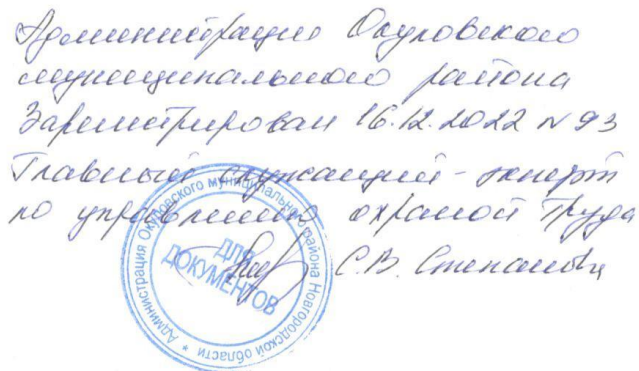 Администрации Окуловского
муниципального района
Зарегистрирован 16.12.2022 N 93
Главный служащий-эксперт
по управлению охраной труда
С.В. Степанова
* Администрация Окуловского муниципального района Новгородской области
ДЛЯ
ДОКУМЕНТОВ